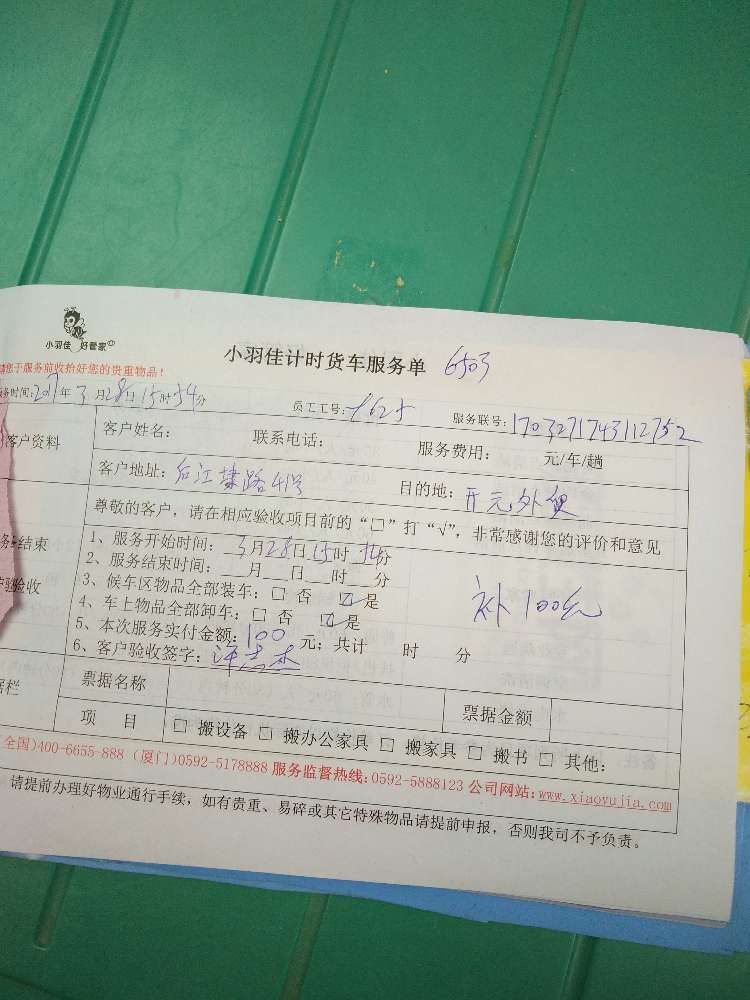 小羽佳 好管家
小羽佳计时货车服务单 6503
于服务前收拾好您的贵重物品！
务时间:2017年3月28日15时34分 员工工号: 服务联号:1703271743112752
客户资料
客户姓名: 联系电话: 服务费用: 元/年/趟
客户地址: 后江埭路41号 目的地: 开元外
尊敬的客户，请在相应验收项目前的“□”打“√”，非常感谢您的评价和意见
结束
验收
1、服务开始时间: 3月28日15时34分
2、服务结束时间: __月__日__时__分
3、候车区物品全部装车: □ 否 ☑ 是
4、车上物品全部卸车: □ 否 ☑ 是
补100元
5、本次服务实付金额: 100 元; 共计 时 分
6、客户验收签字:
栏
票据名称 票据金额
项 目 □ 搬设备 □ 搬办公家具 □ 搬家具 □ 搬书 □ 其他:
全国)400-6655-888 (厦门)0592-5178888 服务监督热线:0592-5888123 公司网站:www.xiaoyujia.com
请提前办理好物业通行手续，如有贵重、易碎或其它特殊物品请提前申报，否则我司不予负责。